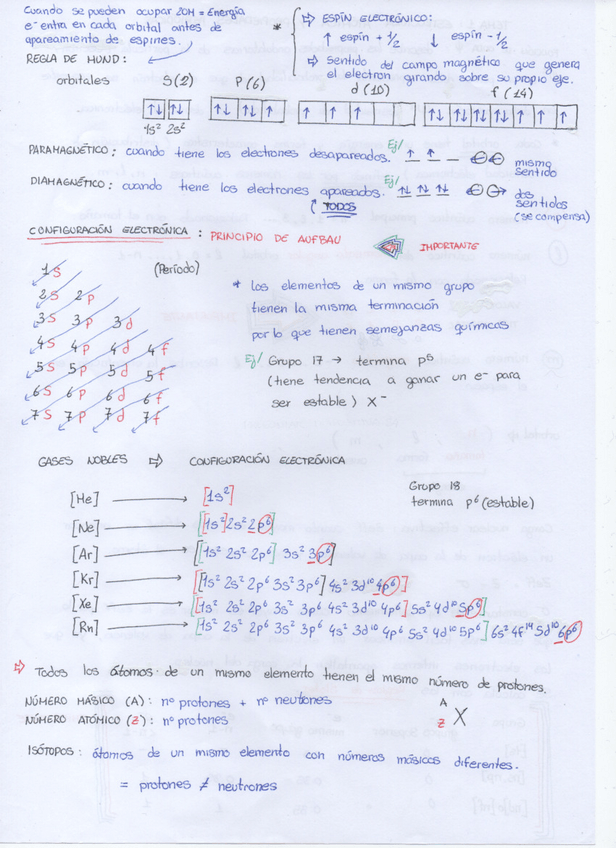 Cuando se pueden ocupar 2OM = Energía
e⁻ entra en cada orbital antes de
apareamiento de espines.
* ⇨ ESPÍN ELECTRÓNICO:
↑ espín +1/2 ↓ espín -1/2
⇨ sentido del campo magnético que genera
el electron girando sobre su propio eje.
REGLA DE HUND:
orbitales S(2) P(6) d(10) f(14)
↑↓ ↑↓ ↑↓ ↑↓ ↑ ↑ ↑ ↑ ↑↓ ↑↓ ↑↓ ↑↓ ↑ ↑ ↑
1s² 2s²
PARAMAGNÉTICO: cuando tiene los electrones desapareados. Ej/ ↑ ↑ _ mismo
sentido
DIAMAGNÉTICO: cuando tiene los electrones apareados. Ej/ ↑↓ ↑↓ ↑↓ dos
sentidos
(se compensa)
↱ TODOS
CONFIGURACIÓN ELECTRÓNICA: PRINCIPIO DE AUFBAU IMPORTANTE
1s (Período)
2s 2p
3s 3p 3d
4s 4p 4d 4f
5s 5p 5d 5f
6s 6p 6d
7s 7p 7d 7f
* Los elementos de un mismo grupo
tienen la misma terminación
por lo que tienen semejanzas químicas
Ej/ Grupo 17 → termina p⁵
(tiene tendencia a ganar un e⁻ para
ser estable) X⁻
GASES NOBLES ⇨ CONFIGURACIÓN ELECTRÓNICA
Grupo 18
termina p⁶ (estable)
[He] → [1s²]
[Ne] → [[1s²] 2s² 2p⁶]
[Ar] → [[1s² 2s² 2p⁶] 3s² 3p⁶]
[Kr] → [[1s² 2s² 2p⁶ 3s² 3p⁶] 4s² 3d¹⁰ 4p⁶]
[Xe] → [1s² 2s² 2p⁶ 3s² 3p⁶ 4s² 3d¹⁰ 4p⁶] 5s² 4d¹⁰ 5p⁶]
[Rn] → [1s² 2s² 2p⁶ 3s² 3p⁶ 4s² 3d¹⁰ 4p⁶ 5s² 4d¹⁰ 5p⁶] 6s² 4f¹⁴ 5d¹⁰ 6p⁶
⇨ Todos los átomos de un mismo elemento tienen el mismo número de protones.
NÚMERO MÁSICO (A): nº protones + nº neutrones
NÚMERO ATÓMICO (Z): nº protones
A
Z X
ISÓTOPOS: átomos de un mismo elemento con números másicos diferentes.
= protones ≠ neutrones